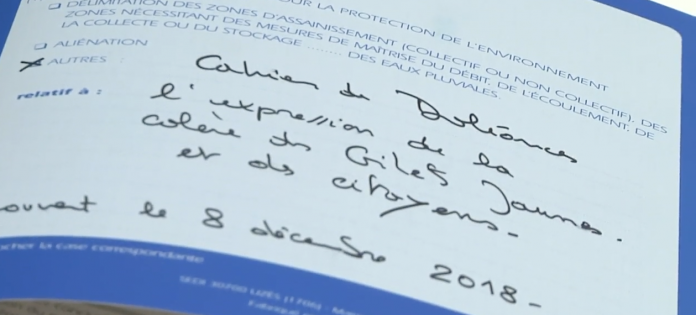 ❑ DÉLIMITATION DES ZONES D'ASSAINISSEMENT (COLLECTIF OU NON COLLECTIF), DES
ZONES NÉCESSITANT DES MESURES DE MAÎTRISE DU DÉBIT, DE L'ÉCOULEMENT, DE
LA COLLECTE OU DU STOCKAGE ........ DES EAUX PLUVIALES.
UR LA PROTECTION DE L'ENVIRONNEMENT
❑ ALIÉNATION
AUTRES :
relatif à :
Cahier de Doléances
l'expression de la
colère des Gilets Jaunes.
et des citoyens.
ouvert le 8 décembre 2018-
ocher la case correspondante